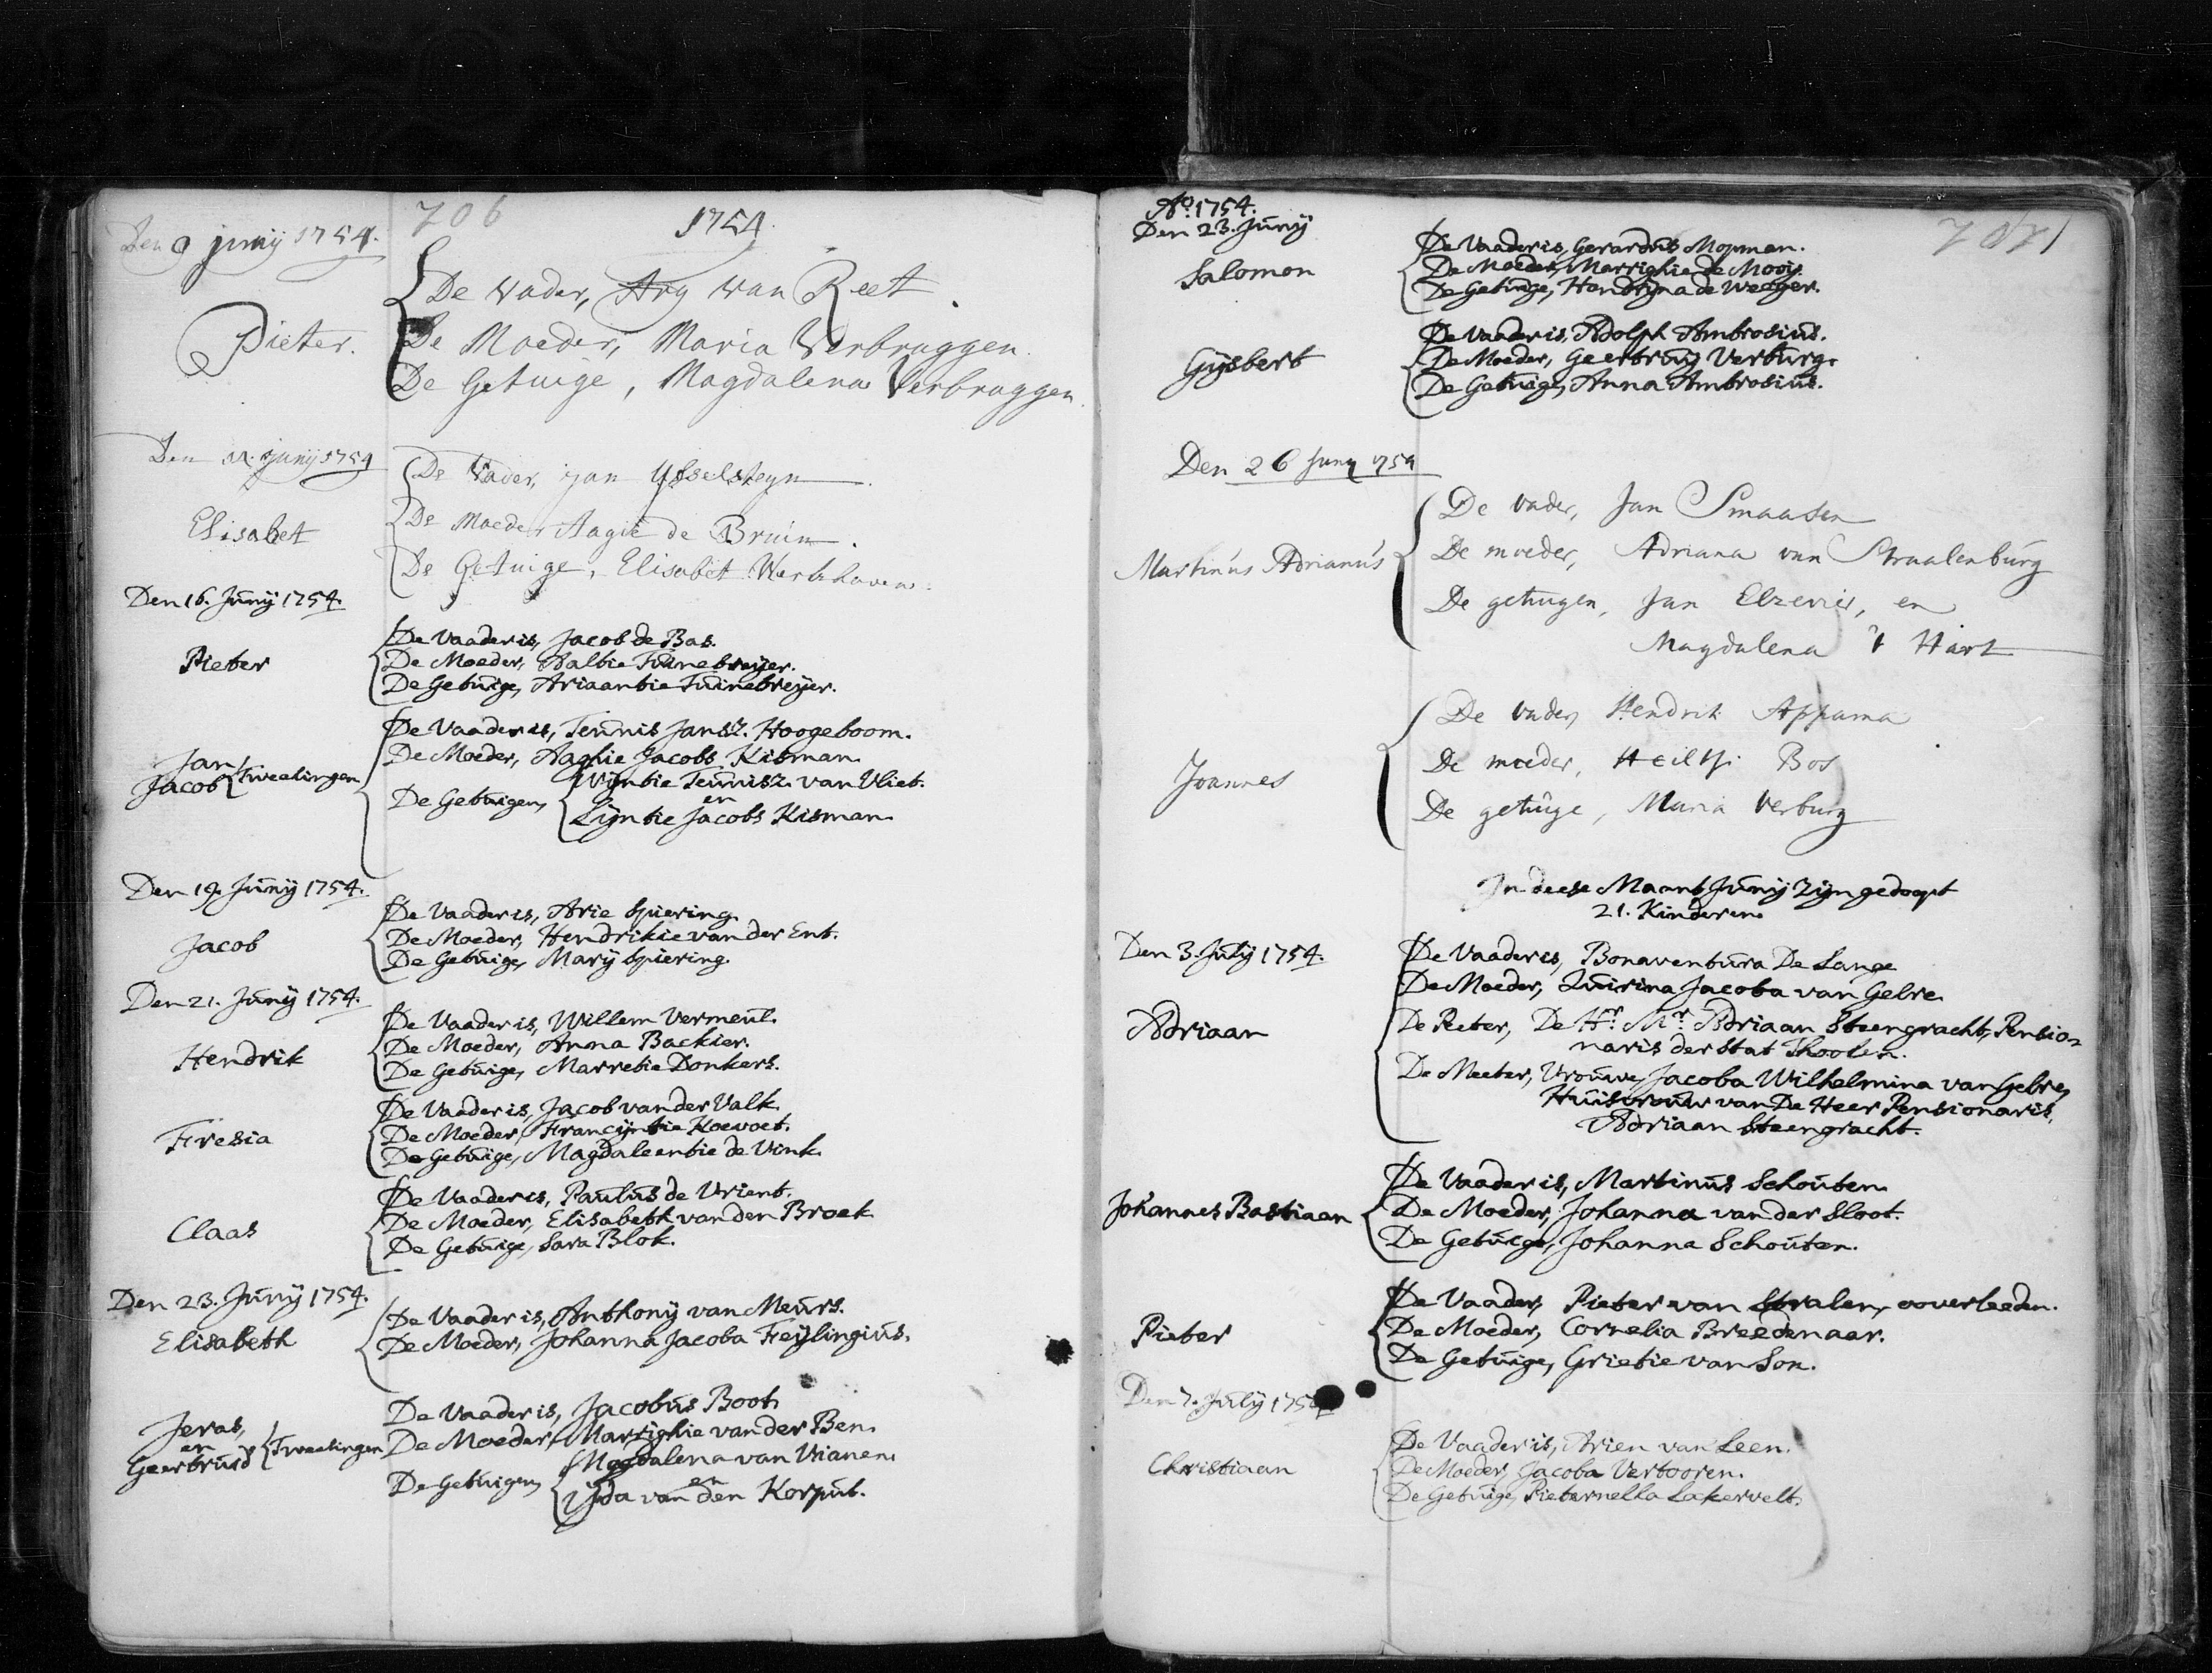 706
1754
Den 9 junij 1754.
Pieter.
De Vader, Ary van Reet.
De Moeder, Maria Verbruggen.
De Getuige, Magdalena Verbruggen.
Den junij 1754
Elisabet
De Vader, jan Ysselsteyn.
De Moeder Aagie de Bruin.
De Getuige, Elisabet Werkhoven.
Den 16. Junij 1754.
Pieter
De Vaader is, Jacob de Bas.
De Moeder, Aaltie Tuinebreijer.
De Getuige, Ariaantie Tuinebreijer.
Jan
Jacob Tweelingen
De Vaader is, Teunis Jansz. Hoogeboom.
De Moeder, Aaghie Jacobs Kisman.
De Getuigen, Wijntie Teunisz. van Vliet.
en
Lijntie Jacobs Kisman.
Den 19. Junij 1754.
Jacob
De Vaader is, Arie Spiering.
De Moeder, Hendrikie van der Ent.
De Getuige, Marij Spiering.
Den 21. Junij 1754.
Hendrik
De Vaader is, Willem Vermeul.
De Moeder, Anna Backier.
De Getuige, Marretie Donkers.
Fresia
De Vaader is, Jacob van der Valk.
De Moeder, Francijntie Koevoet.
De Getuige, Magdaleentie de Vink.
Claas
De Vaader is, Paulus de Vrient.
De Moeder, Elisabeth van den Broek.
De Getuige, Sara Blok.
Den 23. Junij 1754.
Elisabeth
De Vaader is, Anthonij van Meurs.
De Moeder, Johanna Jacoba Feijlingius.
Jeras,
en
Geertruid Tweelingen
De Vaader is, Jacobus Boot.
De Moeder, Marrighie van der Ben.
De Getuigen, Magdalena van Vrianen.
en
Yda van den Korput.
Ao. 1754.
Den 23. Junij
707
Salomon
De Vaader is, Gerardus Mopman.
De Moeder, Marrighie de Mooij.
De Getuige, Hendrijna de Weeger.
Gijsbert
De Vaader is, Adolph Ambrosius.
De Moeder, Geertruij Verburg.
De Getuige, Anna Ambrosius.
Den 26 Juny 1754
Martinus Adrianus
De vader, Jan Smaasen
De moeder, Adriana van Straalenburg
De getuigen, Jan Elzevier, en
Magdalena 't Hart
Joannes
De vader, Hendrik Appama
De moeder, Heiltji Bos
De getuige, Maria Verburg
In deese Maant Junij zijn gedoopt
21. Kinderen.
Den 3. July 1754.
Adriaan
De Vaader is, Bonaventura De Lange
De Moeder, Quirina Jacoba van Gelre.
De Peeter, De Hr. Mr. Adriaan Steengracht, Pensio=
naris der Stat Thoolen.
De Meeter, Vrouwe, Jacoba Wilhelmina van Gelre,
Huisvrouw van De Heer Pensionaris,
Adriaan Steengracht.
Johannes Bastiaan
De Vaader is, Martinus Schouten.
De Moeder, Johanna van der Sloot.
De Getuige, Johanna Schouten.
Pieter
De Vaader, Pieter van Stralen, ooverleeden.
De Moeder, Cornelia Breedenaar.
De Getuige, Grietie van Son.
Den 7. July 1754
Christiaan
De Vaader is, Arien van Leen.
De Moeder, Jacoba Vertooren.
De Getuige, Pieternella Lakervelt.